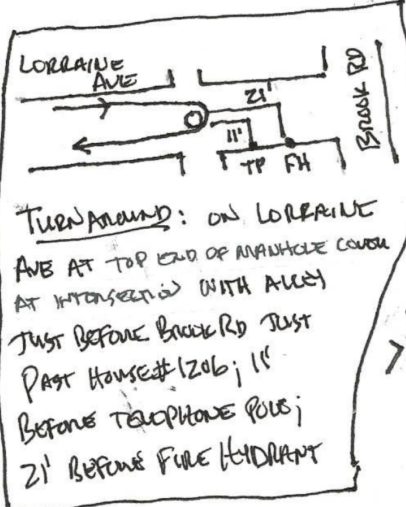 LORRAINE
AVE
21'
11'
TP FH
BROOK RD
TURNAROUND: ON LORRAINE
AVE AT TOP END OF MANHOLE COVER
AT INTERSECTION WITH ALLEY
JUST BEFORE BROOK RD JUST
PAST HOUSE #1206; 11'
BEFORE TELEPHONE POLE;
21' BEFORE FIRE HYDRANT